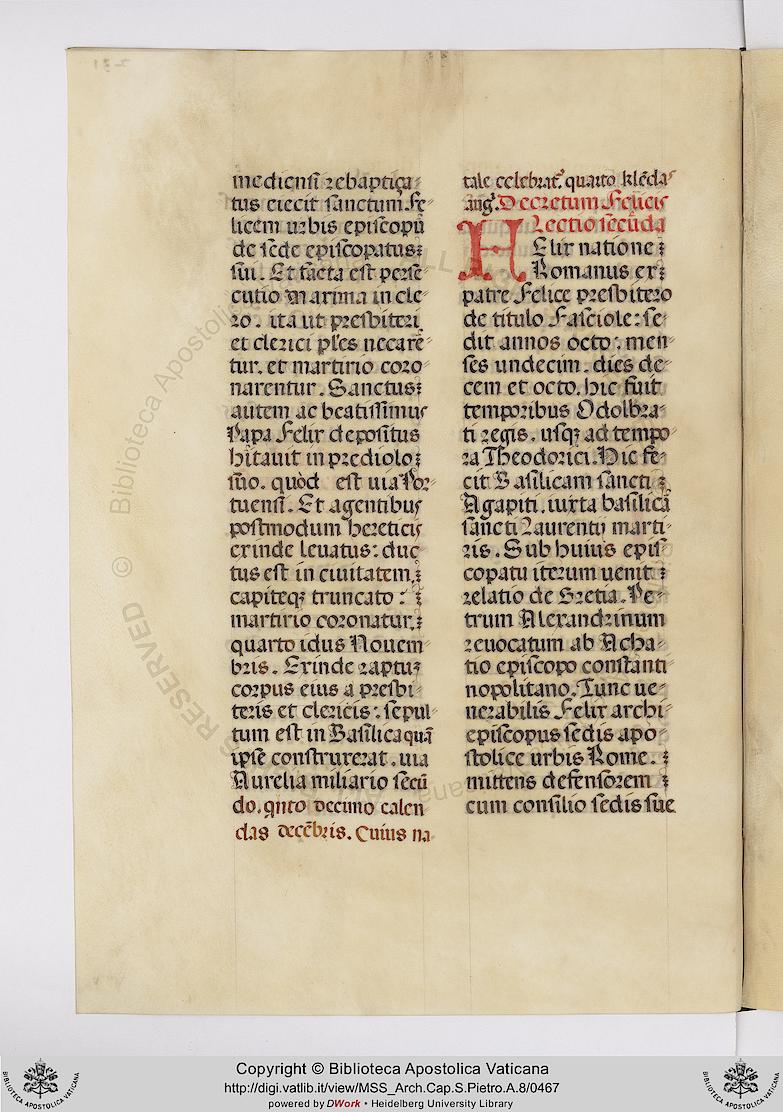 mediensi rebaptiça
tus eiecit sanctum Fe
licem urbis episcopū
de sede episcopatus
sui. Et facta est perse
cutio maxima in cle
ro. ita ut presbiteri
et clerici pl̄es necarē
tur. et martirio coro
narentur. Sanctus
autem ac beatissimus
Papa Felix depositus
hitauit in prediolo
suo. quòd est uia Por
tuensi. Et agentibus
postmodum hereticis
exinde leuatus: duc
tus est in ciuitatem.
capiteqꝫ truncato:
martirio coronatur.
quarto idus Nouem
bris. Exinde raptuꝫ
corpus eius a presbi
teris et clericis: sepul
tum est in Basilica quā
ipse construxerat. uia
Aurelia miliario secū
do. qnto decimo calen
das decēbris. Cuius na
tale celebrat᷑. quarto kl̄enda
aug᷑. Decretum Felicis
Lectio secūda
Felix natione
Romanus ex
patre Felice presbitero
de titulo Fasciole: se
dit annos octo. men
ses undecim. dies de
cem et octo. hic fuit
temporibus Odolbra
ti regis. usqꝫ ad tempo
ra Theodorici. Hic fe
cit Basilicam sancti
Agapiti. iuxta basilicā
sancti Laurentij marti
ris. Sub huius epis
copatu iterum uenit
relatio de Gretia. Pe
trum Alexandrinum
reuocatum ab Acha
tio episcopo constanti
nopolitano. Tunc ue
nerabilis Felix archi
episcopus sedis apo
stolice urbis Rome.
mittens defensorem
cum consilio sedis sue
Copyright © Biblioteca Apostolica Vaticana
http://digi.vatlib.it/view/MSS_Arch.Cap.S.Pietro.A.8/0467
powered by DWork • Heidelberg University Library